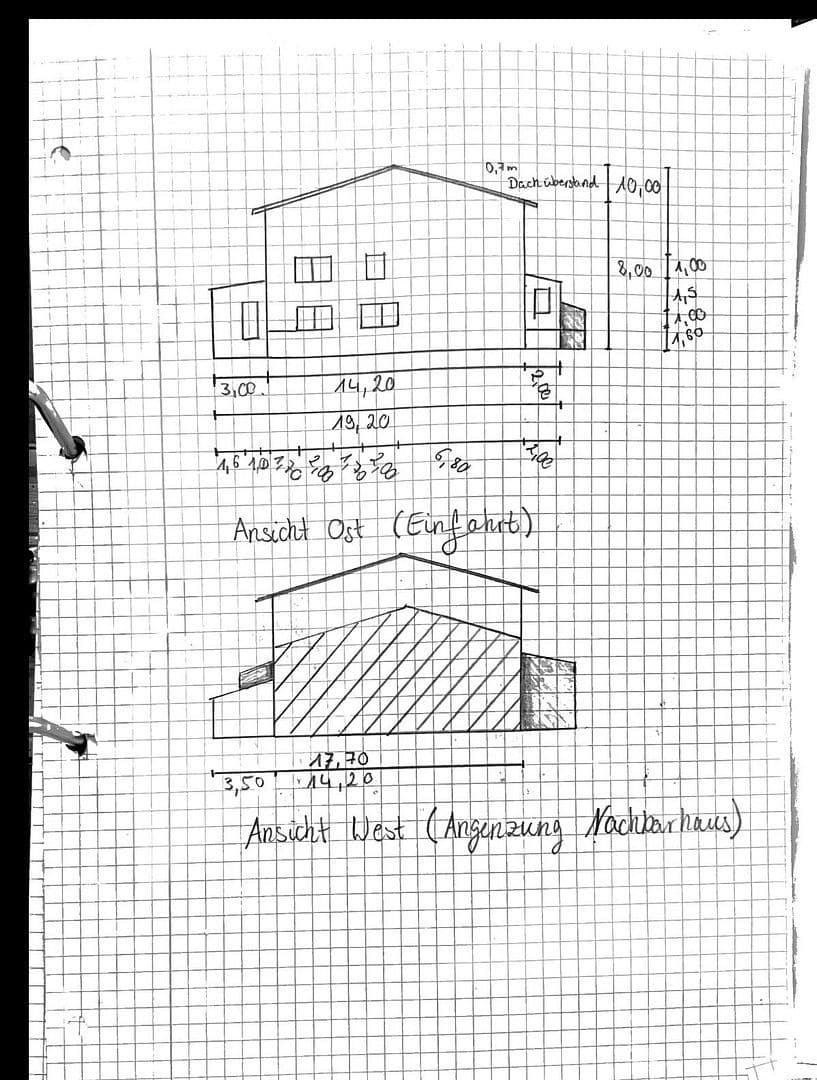 0,7m
Dachüberstand
10,00
8,00
1,00
1,5
1,00
1,60
3,00
14,20
2,00
19,20
1,6 1,0 2,00 2,00 6,80 2,00
Ansicht Ost (Einfahrt)
17,70
3,50 14,20
Ansicht West (Angenzung Nachbarhaus)